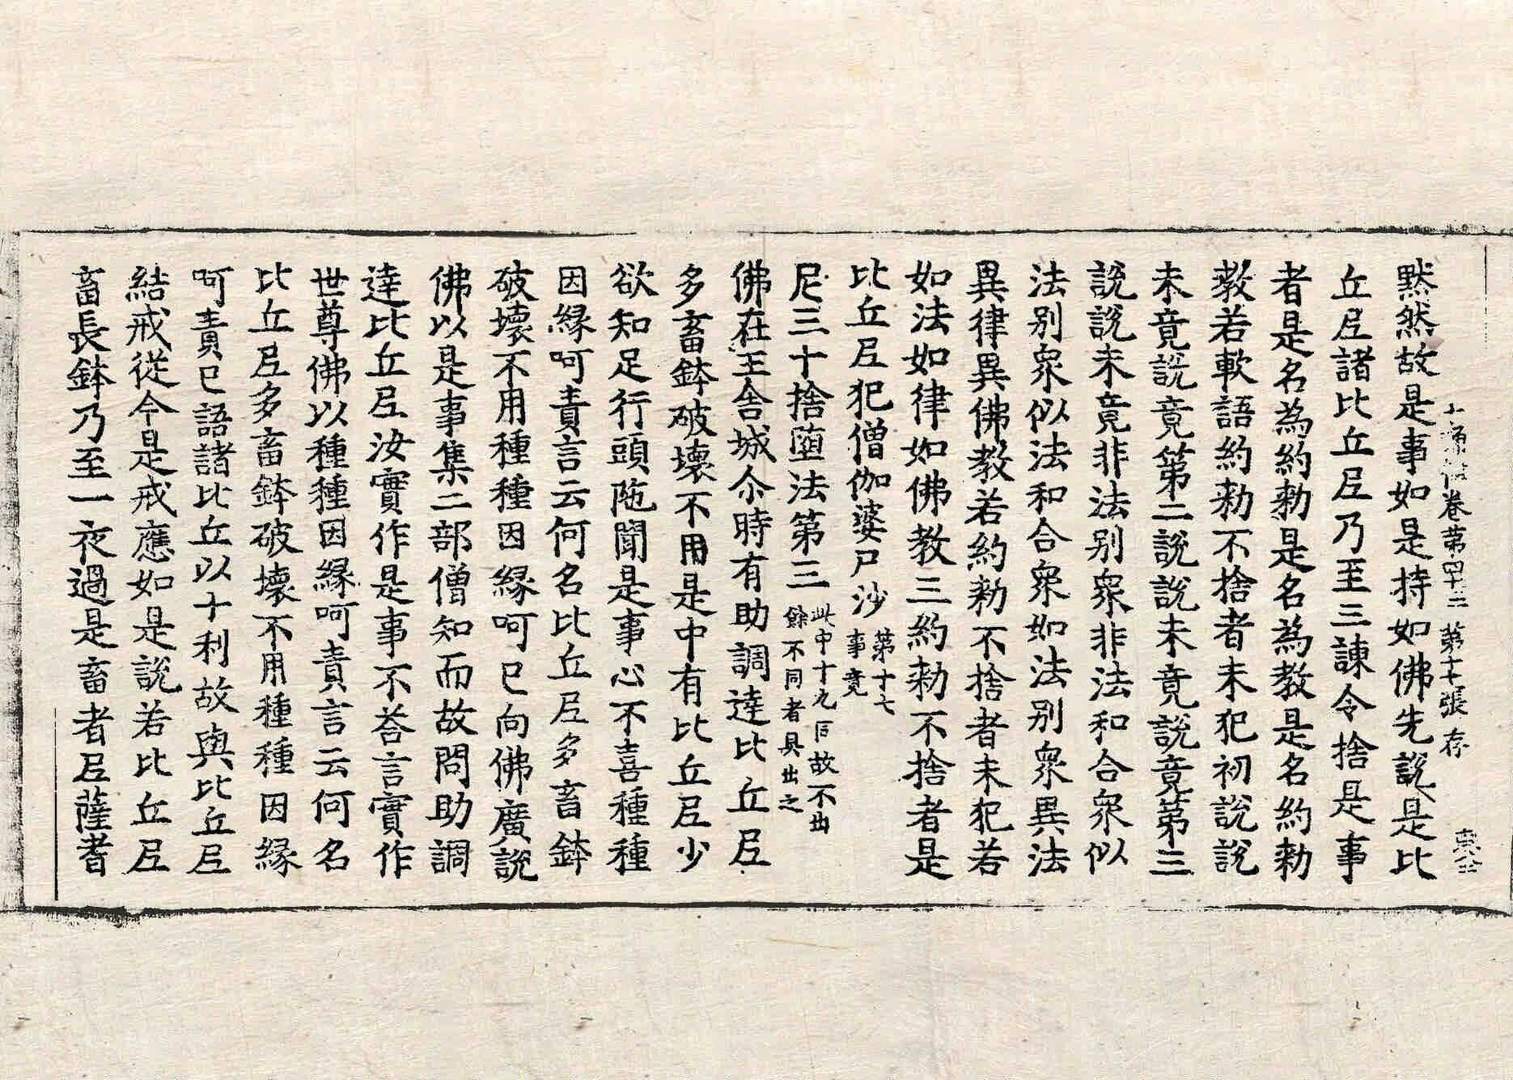 十誦律卷第四十三 第十七張 存
默然故是事如是持如佛先說是比
丘尼諸比丘尼乃至三諫令捨是事
者是名為約勑是名為教是名約勑
教若軟語約勑不捨者未犯初說說
未竟說竟第二說說未竟說竟第三
說說未竟非法別衆非法和合衆似
法別衆似法和合衆如法別衆異法
異律異佛教若約勑不捨者未犯若
如法如律如佛教三約勑不捨者是
比丘尼犯僧伽婆尸沙 第十七事竟
尼三十捨墮法第三 此中十九同故不出餘不同者具出之
佛在王舍城尒時有助調達比丘尼
多畜鉢破壞不用是中有比丘尼少
欲知足行頭陁聞是事心不喜種種
因緣呵責言云何名比丘尼多畜鉢
破壞不用種種因緣呵已向佛廣說
佛以是事集二部僧知而故問助調
達比丘尼汝實作是事不荅言實作
世尊佛以種種因緣呵責言云何名
比丘尼多畜鉢破壞不用種種因緣
呵責已語諸比丘以十利故與比丘尼
結戒從今是戒應如是說若比丘尼
畜長鉢乃至一夜過是畜者尼薩耆